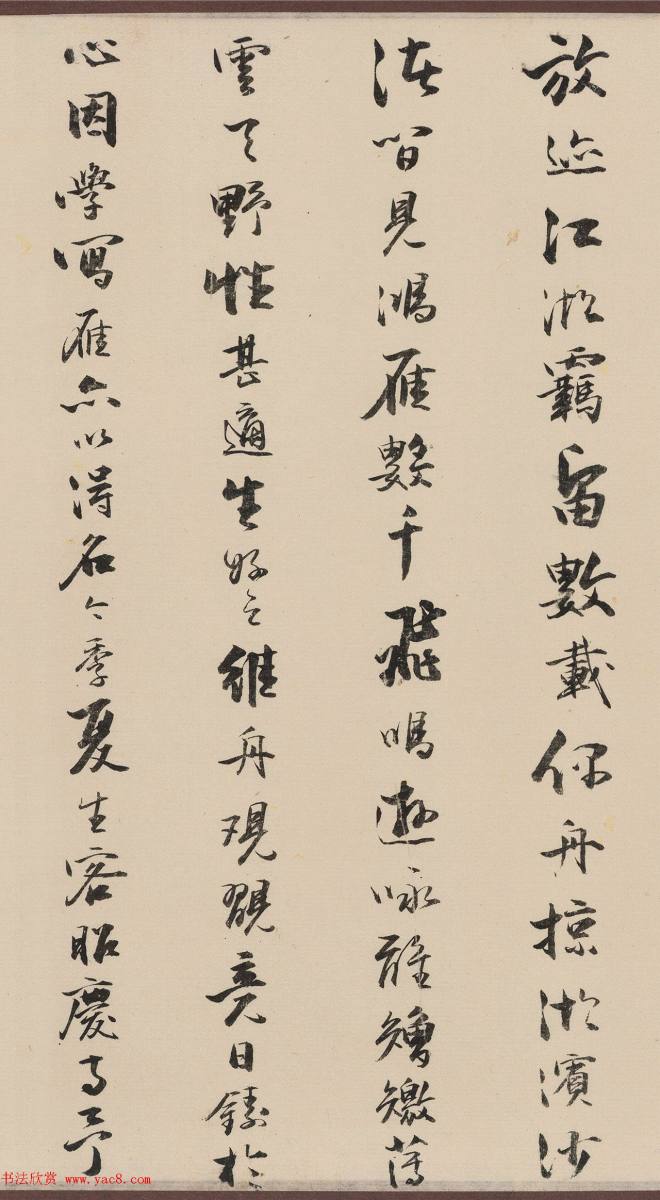 放迹江湖羈留數載係舟掠湖濱沙
渚間見鴻雁數千飛鳴遊咏離矰繳薄
雲天野性甚適生好之維舟觀覩竟日録於
心因學寫雁亦以得名今季夏生客昭慶寺予
书法欣赏 www.yac8.com